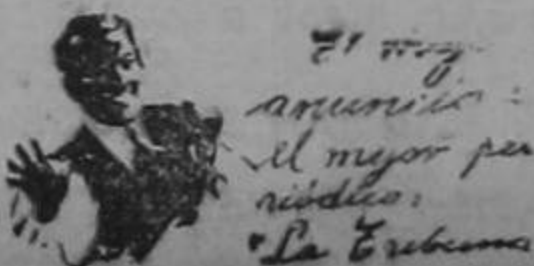 El
anuncio:
el mejor pe
riódico:
"La Tribuna